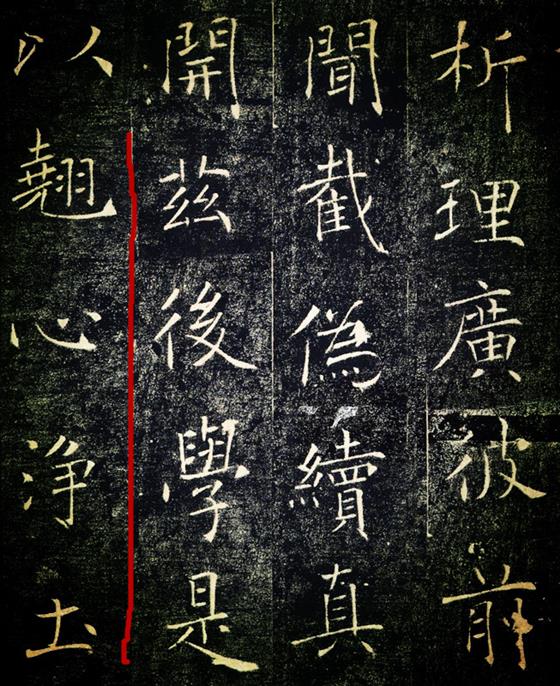 析理廣彼前
聞截偽續真
開茲後學是
以翹心淨土